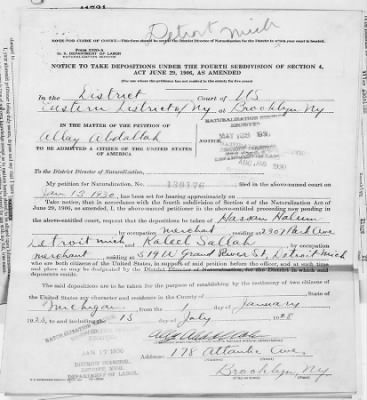 Detroit Mich
NOTE FOR CLERK OF COURT.—This form should be sent to the District Director of Naturalization for the District in which your court is located.
U. S. DEPARTMENT OF LABOR
NATURALIZATION SERVICE
NOTICE TO TAKE DEPOSITIONS UNDER THE FOURTH SUBDIVISION OF SECTION 4,
ACT JUNE 29, 1906, AS AMENDED
In the District Court of US
Eastern District of Ny at Brooklyn Ny
IN THE MATTER OF THE PETITION OF
Allay Abdallah
TO BE ADMITTED A CITIZEN OF THE UNITED STATES
OF AMERICA
NOTICE
To the District Director of Naturalization.
My petition for Naturalization, No. filed in the above-named court on
Jan 13 1930, has been set for hearing approximately on
Take notice, that in accordance with the fourth subdivision of section 4 of the Naturalization Act of
June 29, 1906, as amended, I, the above-named petitioner in the above-entitled proceeding now pending in the
above-entitled court, request that the depositions be taken of Hassan
, by occupation merchant, residing at Park Ave
Detroit Mich and Kaleel Sallah, by occupation
merchant, residing at Grand River St, Detroit Mich
who are both citizens of the United States, in support of said petition before the officer, and at such time
and place as may be designated by the District Director of Naturalization, for the District in which said
deponents reside.
The said depositions are to be taken for the purpose of establishing by the testimony of two citizens of the United
States my character and residence in the County of State of
Michigan from the 1 day of January
, and including the 15 day of July 1928
178 Atlantic Ave,
Brooklyn, Ny
JAN 17 1930
DISTRICT DIRECTOR,
DETROIT, MICH.
DEPARTMENT OF LABOR